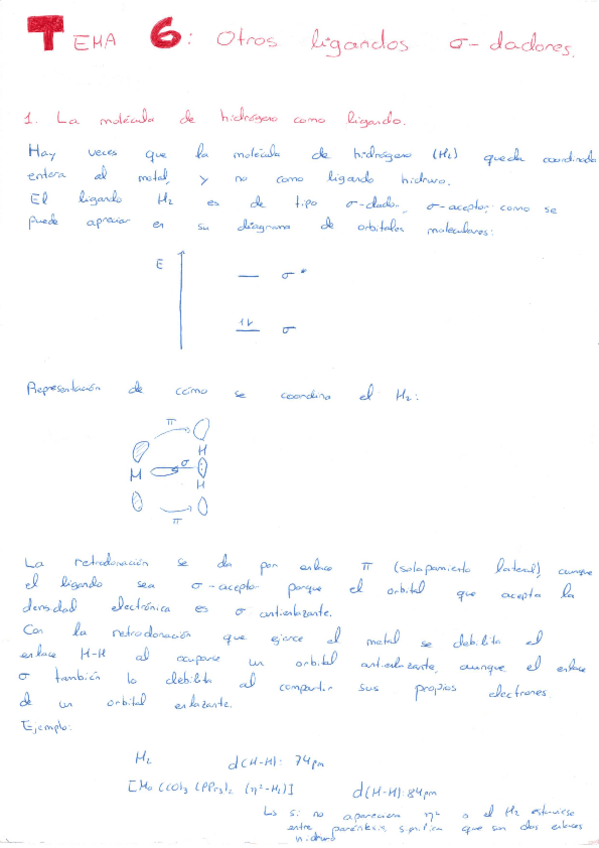 TEMA 6: Otros ligandos σ-dadores.
1. La molécula de hidrógeno como ligando.
Hay veces que la molécula de hidrógeno (H₂) queda coordinada
entera al metal, y no como ligando hidruro.
El ligando H₂ es de tipo σ-dador, σ-aceptor, como se
puede apreciar en su diagrama de orbitales moleculares:
E
σ*
1L σ
Representación de cómo se coordina el H₂:
π
H
M σ
H
π
La retrodonación se da por enlace π (solapamiento lateral), aunque
el ligando sea σ-aceptor porque el orbital que acepta la
densidad electrónica es σ antienlazante.
Con la retrodonación que ejerce el metal se debilita el
enlace H-H al ocuparse un orbital antienlazante, aunque el enlace
σ también lo debilita al compartir sus propios electrones
de un orbital enlazante.
Ejemplo:
H₂ d(H-H): 74pm
[Mo (CO)₃ (PPr₃)₂ (η²-H₂)] d(H-H): 84pm
↳ Si no apareciera η² o el H₂ estuviese
entre paréntesis significa que son dos enlaces
hidruro